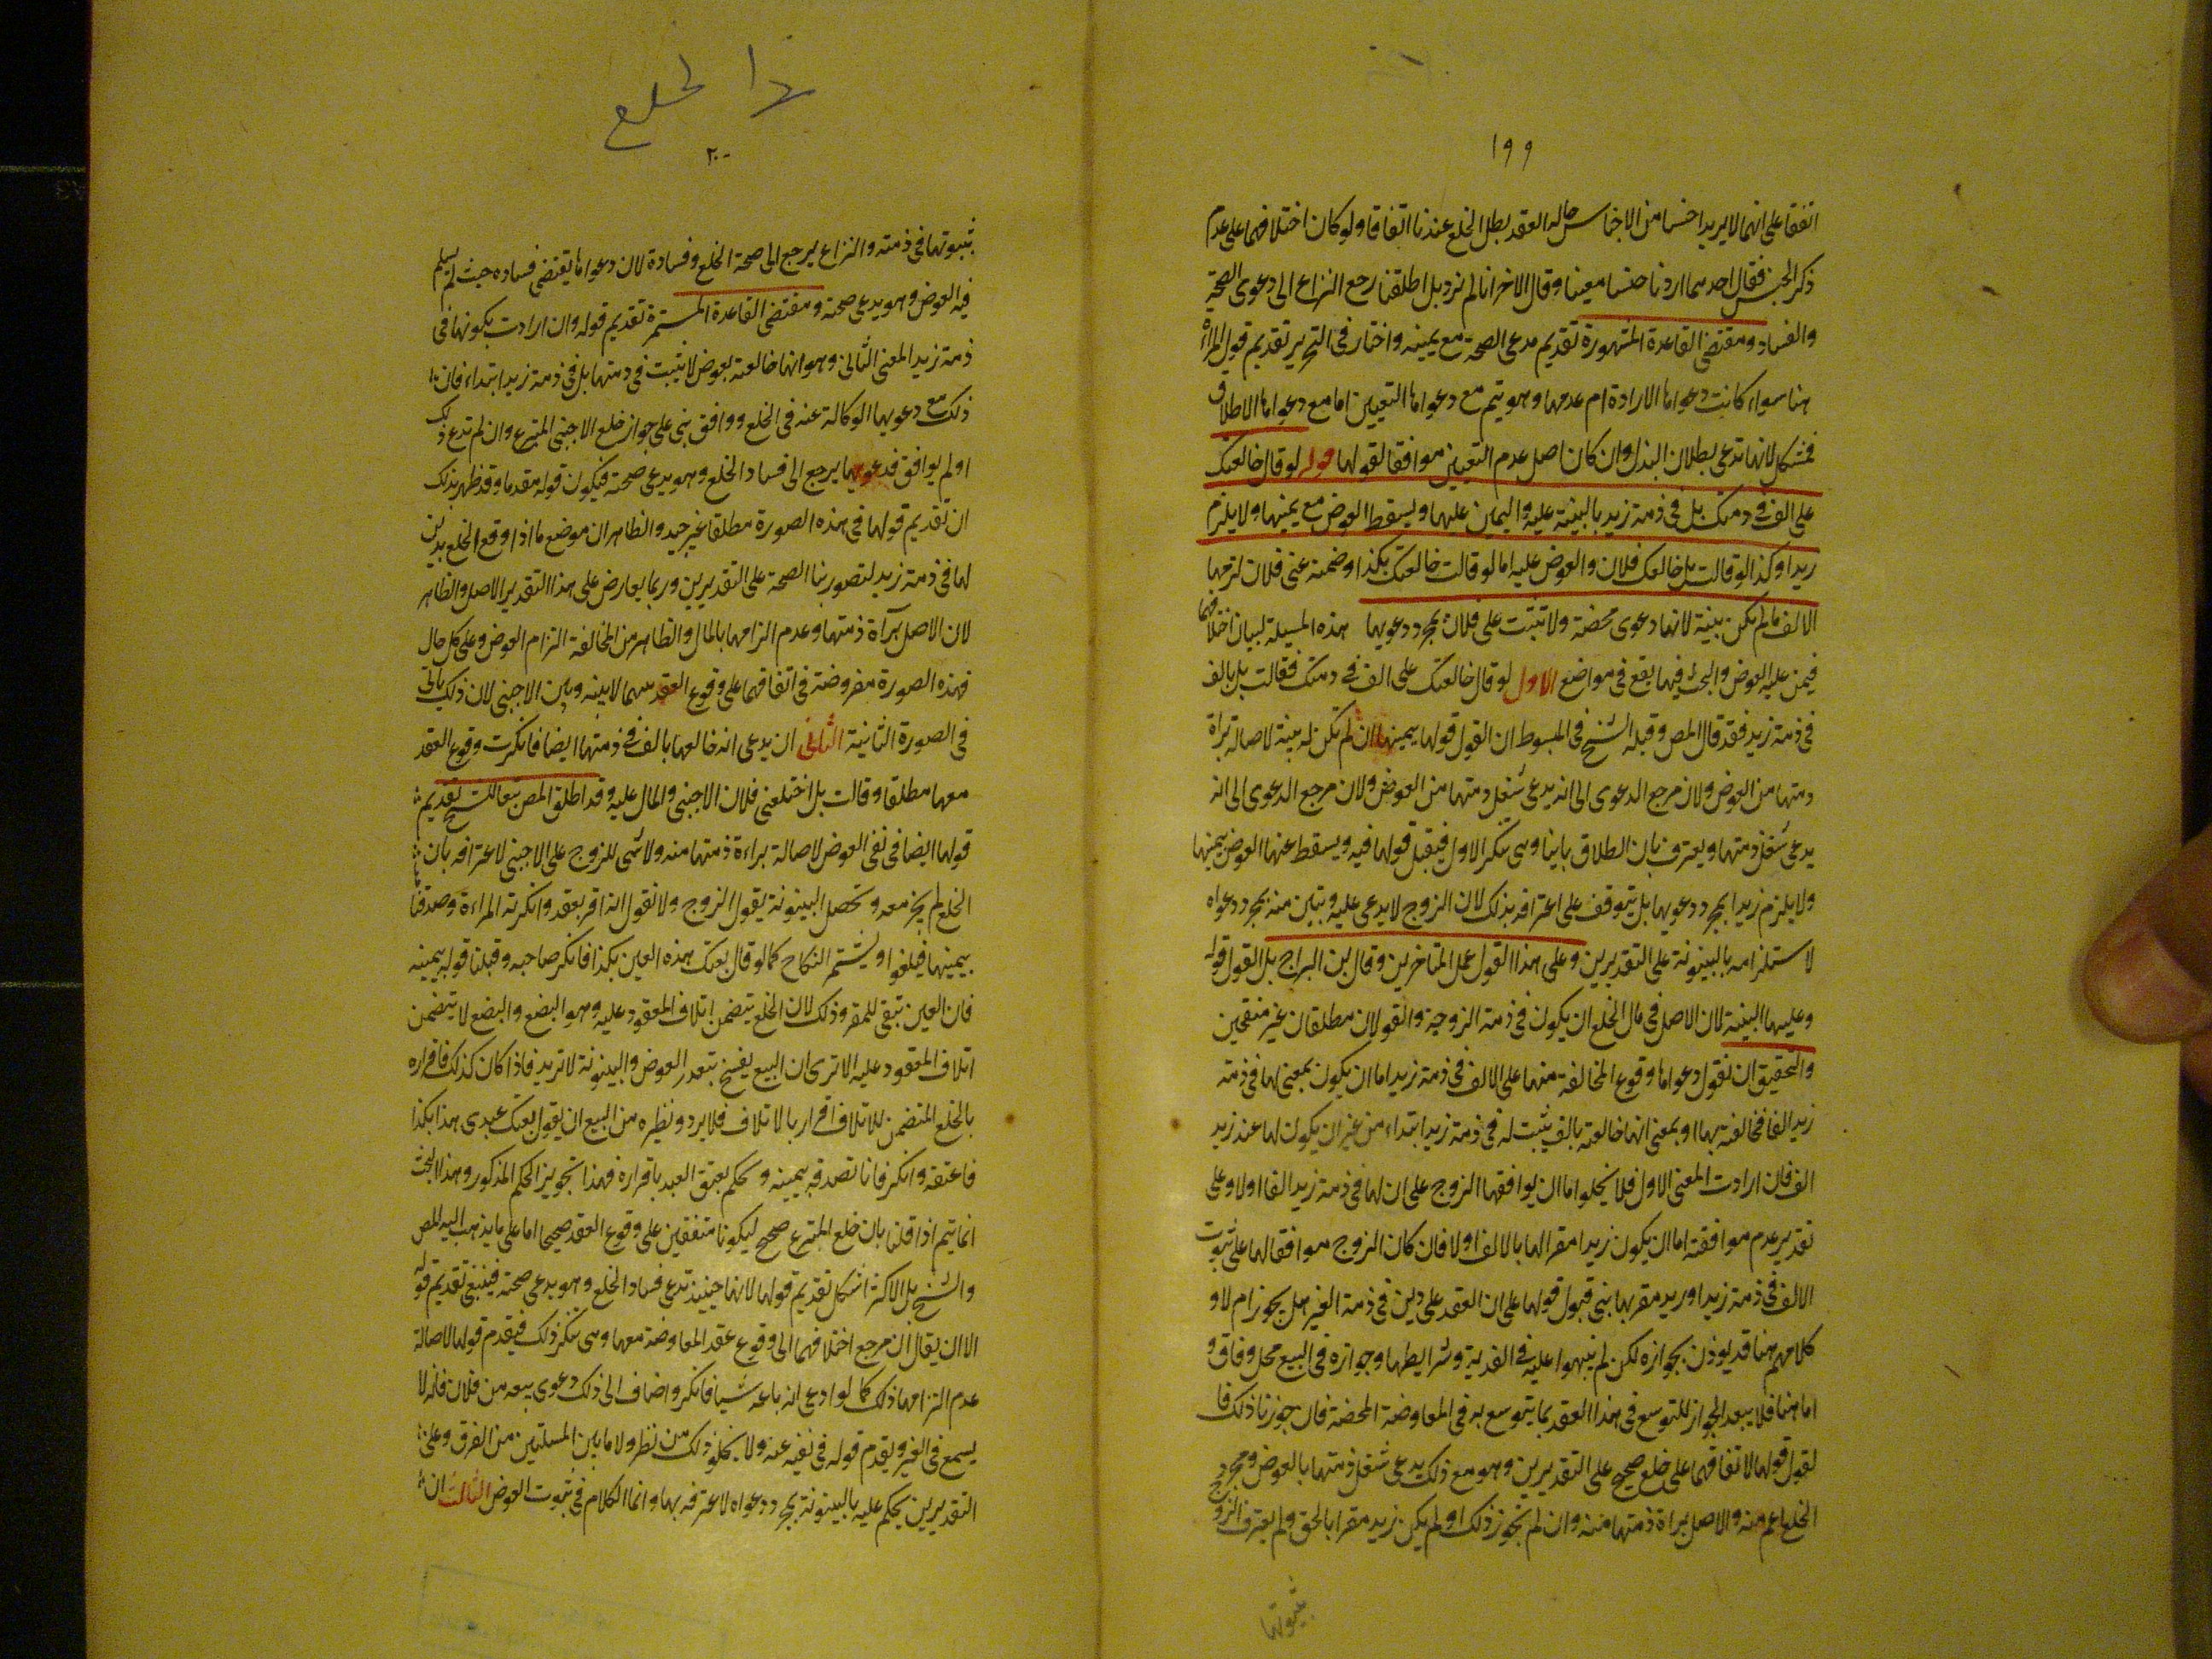 ١٩٩
اتفقا على انهما لا يريدا جنسا من الاجناس حالة العقد بطل الخلع عندنا اتفاقا ولو كان اختلافهما على عدم
ذكر الجنس فقال احدهما اردنا جنسا معينا وقال الاخر انا لم نرد بل اطلقنا رجع النزاع الى دعوى الصحة
والفساد ومقتضى القاعدة المشهورة تقديم مدعى الصحة مع يمينه واختار فى التحرير تقديم قول المراة
هنا سواء كانت دعواها الارادة ام عدمها وهو يتم مع دعواها التعيين اما مع دعواها الاطلاق
فمشكل لانها تدعى بطلان البذل وان كان اصل عدم التعيين موافقا لقولها قوله لو قال خالعتك
على الف فى ذمتك بل فى ذمة زيد بالبينة عليه واليمين عليها ويسقط العوض مع يمينها ولا يلزم
زيدا وكذا لو قالت بل خالعك فلان والعوض عليه اما لو قالت خالعتك بكذا وضمنه عنى فلان لزمها
الالف ما لم يكن بينة لانها دعوى محضة ولا تثبت على فلان بمجرد دعويها هذه المسيلة لبيان اختلافهما
فيمن عليه العوض والبحث فيها يقع فى مواضع الاول لو قال خالعتك على الف فى ذمتك فقالت بل بالف
فى ذمة زيد فقد قال المص وقبله الشيخ فى المبسوط ان القول قولها بيمينها ان لم تكن له بينة لاصالة براة
ذمتها من العوض ولان مرجع الدعوى الى انه يدعى شغل ذمتها من العوض ولان مرجع الدعوى الى انه
يدعى شغل ذمتها ويعترف بان الطلاق باينا وهى تنكر الاول فيقبل قولها فيه ويسقط عنها العوض بيمينها
ولا يلزم زيدا بمجرد دعويها بل يتوقف على اعترافه بذلك لان الزوج لا يدعى عليه وتبين منه بمجرد دعواه
لاستلزامه بالبينونة على التقديرين وعلى هذا القول عمل المتاخرين وقال بن البراج بل القول قوله
وعليها البينة لان الاصل فى مال الخلع ان يكون فى ذمة الزوجة والقولان مطلقان غير منقحين
والتحقيق ان نقول دعواها وقوع المخالفة منهما على الالف فى ذمة زيد اما ان يكون بمعنى لها فى ذمة
زيد الفا فخالعته بها او بمعنى انها خالعته بالف يثبت له فى ذمة زيد ابتداء من غير ان يكون لها عند زيد
الف فان ارادت المعنى الاول فلا يخلوا اما ان يوافقها الزوج على ان لها فى ذمة زيد الفا اولا وعلى
تقدير عدم موافقته اما ان يكون زيدا مقرا لها بالالف اولا فان كان الزوج موافقا لها على ثبوت
الالف فى ذمة زيد او زيد مقر بها بنى قبول قولها على ان العقد على دين فى ذمة الغير هل يجوز ام لا و
كلامهم هنا قد يوذن بجوازه لكن لم ينبهوا عليه فى الفدية وشرايطها وجوازه فى البيع محل وفاق و
اما هنا فلا يبعد الجواز للتوسع فى هذا العقد بما يتوسع به فى المعاوضة المحضة فان جوزنا ذلك فا
لقول قولها لاتفاقهما على خلع صحيح على التقديرين وهو مع ذلك يدعى شغل ذمتها بالعوض ومجرد
الخلع اعم منه والاصل براة ذمتها منه وان لم نجوز ذلك او لم يكن زيد مقرا بالحق ولم يعترف الزوج
بثبوتها
هذا الخلع
٢٠٠
بثبوتها فى ذمته والنزاع يرجع الى صحة الخلع وفسادة لان دعواها يقتضى فساده حيث لم يسلم
فيه العوض وهو يدعى صحته ومقتضى القاعدة المستمرة تقديم قوله وان ارادت بكونها فى
ذمة زيد المعنى الثانى وهو انها خالعته بعوض لا يثبت فى ذمتها بل فى ذمة زيد ابتداء فان
ذلك مع دعويها الوكالة عنه فى الخلع ووافق بنى على جواز خلع الاجنبى المتبرع وان لم تدع ذلك
او لم يوافق فدعويها يرجع الى فساد الخلع وهو يدعى صحته فيكون قوله مقدما وقد ظهر بذلك
ان تقديم قولها فى هذه الصورة مطلقا غير جيد والظاهر ان موضع ما اذا وقع الخلع بدين
لها فى ذمة زيد لتصورنا الصحة على التقديرين وربما يعارض على هذا التقدير الاصل والظاهر
لان الاصل براءة ذمتها وعدم الزامها بالمال والظاهر من المخالفة التزام العوض وعلى كل حال
فهذه الصورة مفروضة فى اتفاقهما على وقوع العقد بينهما لا بينه وبين الاجنبى لان ذلك ياتى
فى الصورة الثانية الثانى ان يدعى انه خالعها بالف فى ذمتها ايضا فانكرت وقوع العقد
معها مطلقا وقالت بل اختلعنى فلان الاجنبى والمال عليه وقد اطلق المص تبعا للشيخ تقديم
قولها ايضا فى نفى العوض لاصالة براءة ذمتها منه ولا شى للزوج على الاجنبى لاعترافه بان
الخلع لم يجز معه وتحصل البينونة بقول الزوج ولا نقول انه اقر بعقد وانكرته المراءة وصدقنا
بيمينها فيلغوا ويستمر النكاح كما لو قال بعتك هذه العين بكذا فانكر صاحبه وقبلنا قوله بيمينه
فان العين تبقى للمقر وذلك لان الخلع يتضمن اتلاف المعقود عليه وهو البضع والبضع لا يتضمن
اتلاف المعقود عليه الا ترى ان البيع يفسخ بتعذر العوض والبينونة لا ترتد فاذا كان كذلك فاقراره
بالخلع المتضمن للاتلاف اقرار بالاتلاف فلا يرد ونظيره من البيع ان يقول بعتك عبدى هذا بكذا
فاعتقه وانكر فانا نصدقه بيمينه ونحكم بعتق العبد باقراره فهذا تجويز الحكم المذكور وهذا البحث
انما يتم اذا قلنا بان خلع المتبرع صحيح ليكونا متفقين على وقوع العقد صحيحا اما على ما يذهب اليه المص
والشيخ بل الاكثر اشكل تقديم قولها لانها حينئذ تدعى فساد الخلع وهو يدعى صحته فينبغى تقديم قوله
الا ان يقال ان مرجع اختلافهما الى وقوع عقد المعاوضة معها وهى تنكر ذلك فيقدم قولها لاصالة
عدم التزامها ذلك كما لو ادعى انه باعه شيا فانكر واضاف الى ذلك دعوى بيعه من فلان فانه لا
يسمع فى الغير ويقدم قوله فى نفيه عنه ولا يخلو ذلك من نظر ولا ما بين المسئلتين من الفرق وعلى
التقديرين يحكم عليه بالبينونة بمجرد دعواه لاعترافه بها وانما الكلام فى ثبوت العوض الثالث ان